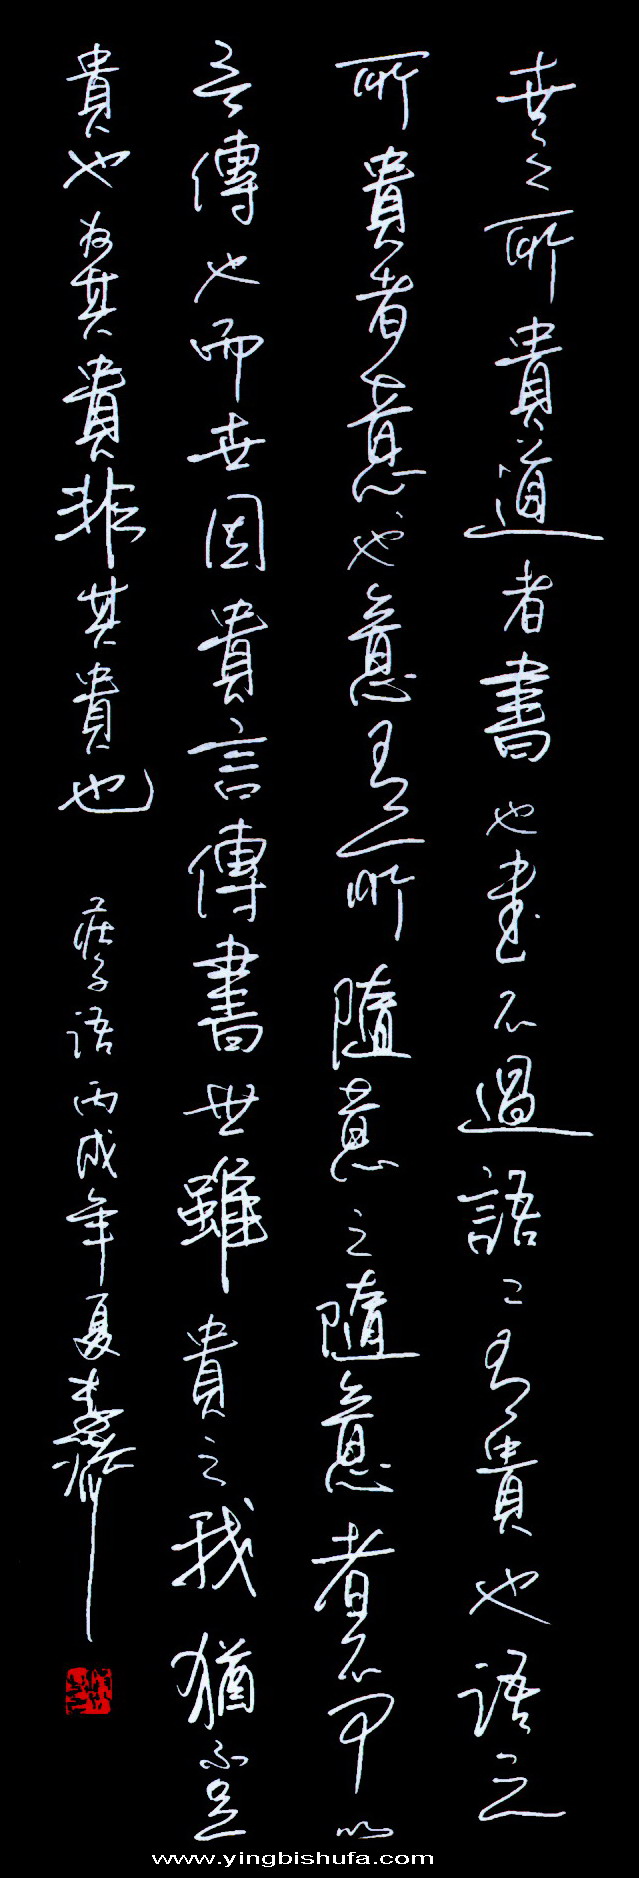 世之所貴道者書也書不過語〻有貴也語之
所貴者意也意有所隨意之隨意者不可以
言傳也而世因貴言傳書世雖貴之我猶不足
貴也為其貴非其貴也 莊子語丙戌年夏
www.yingbishufa.com